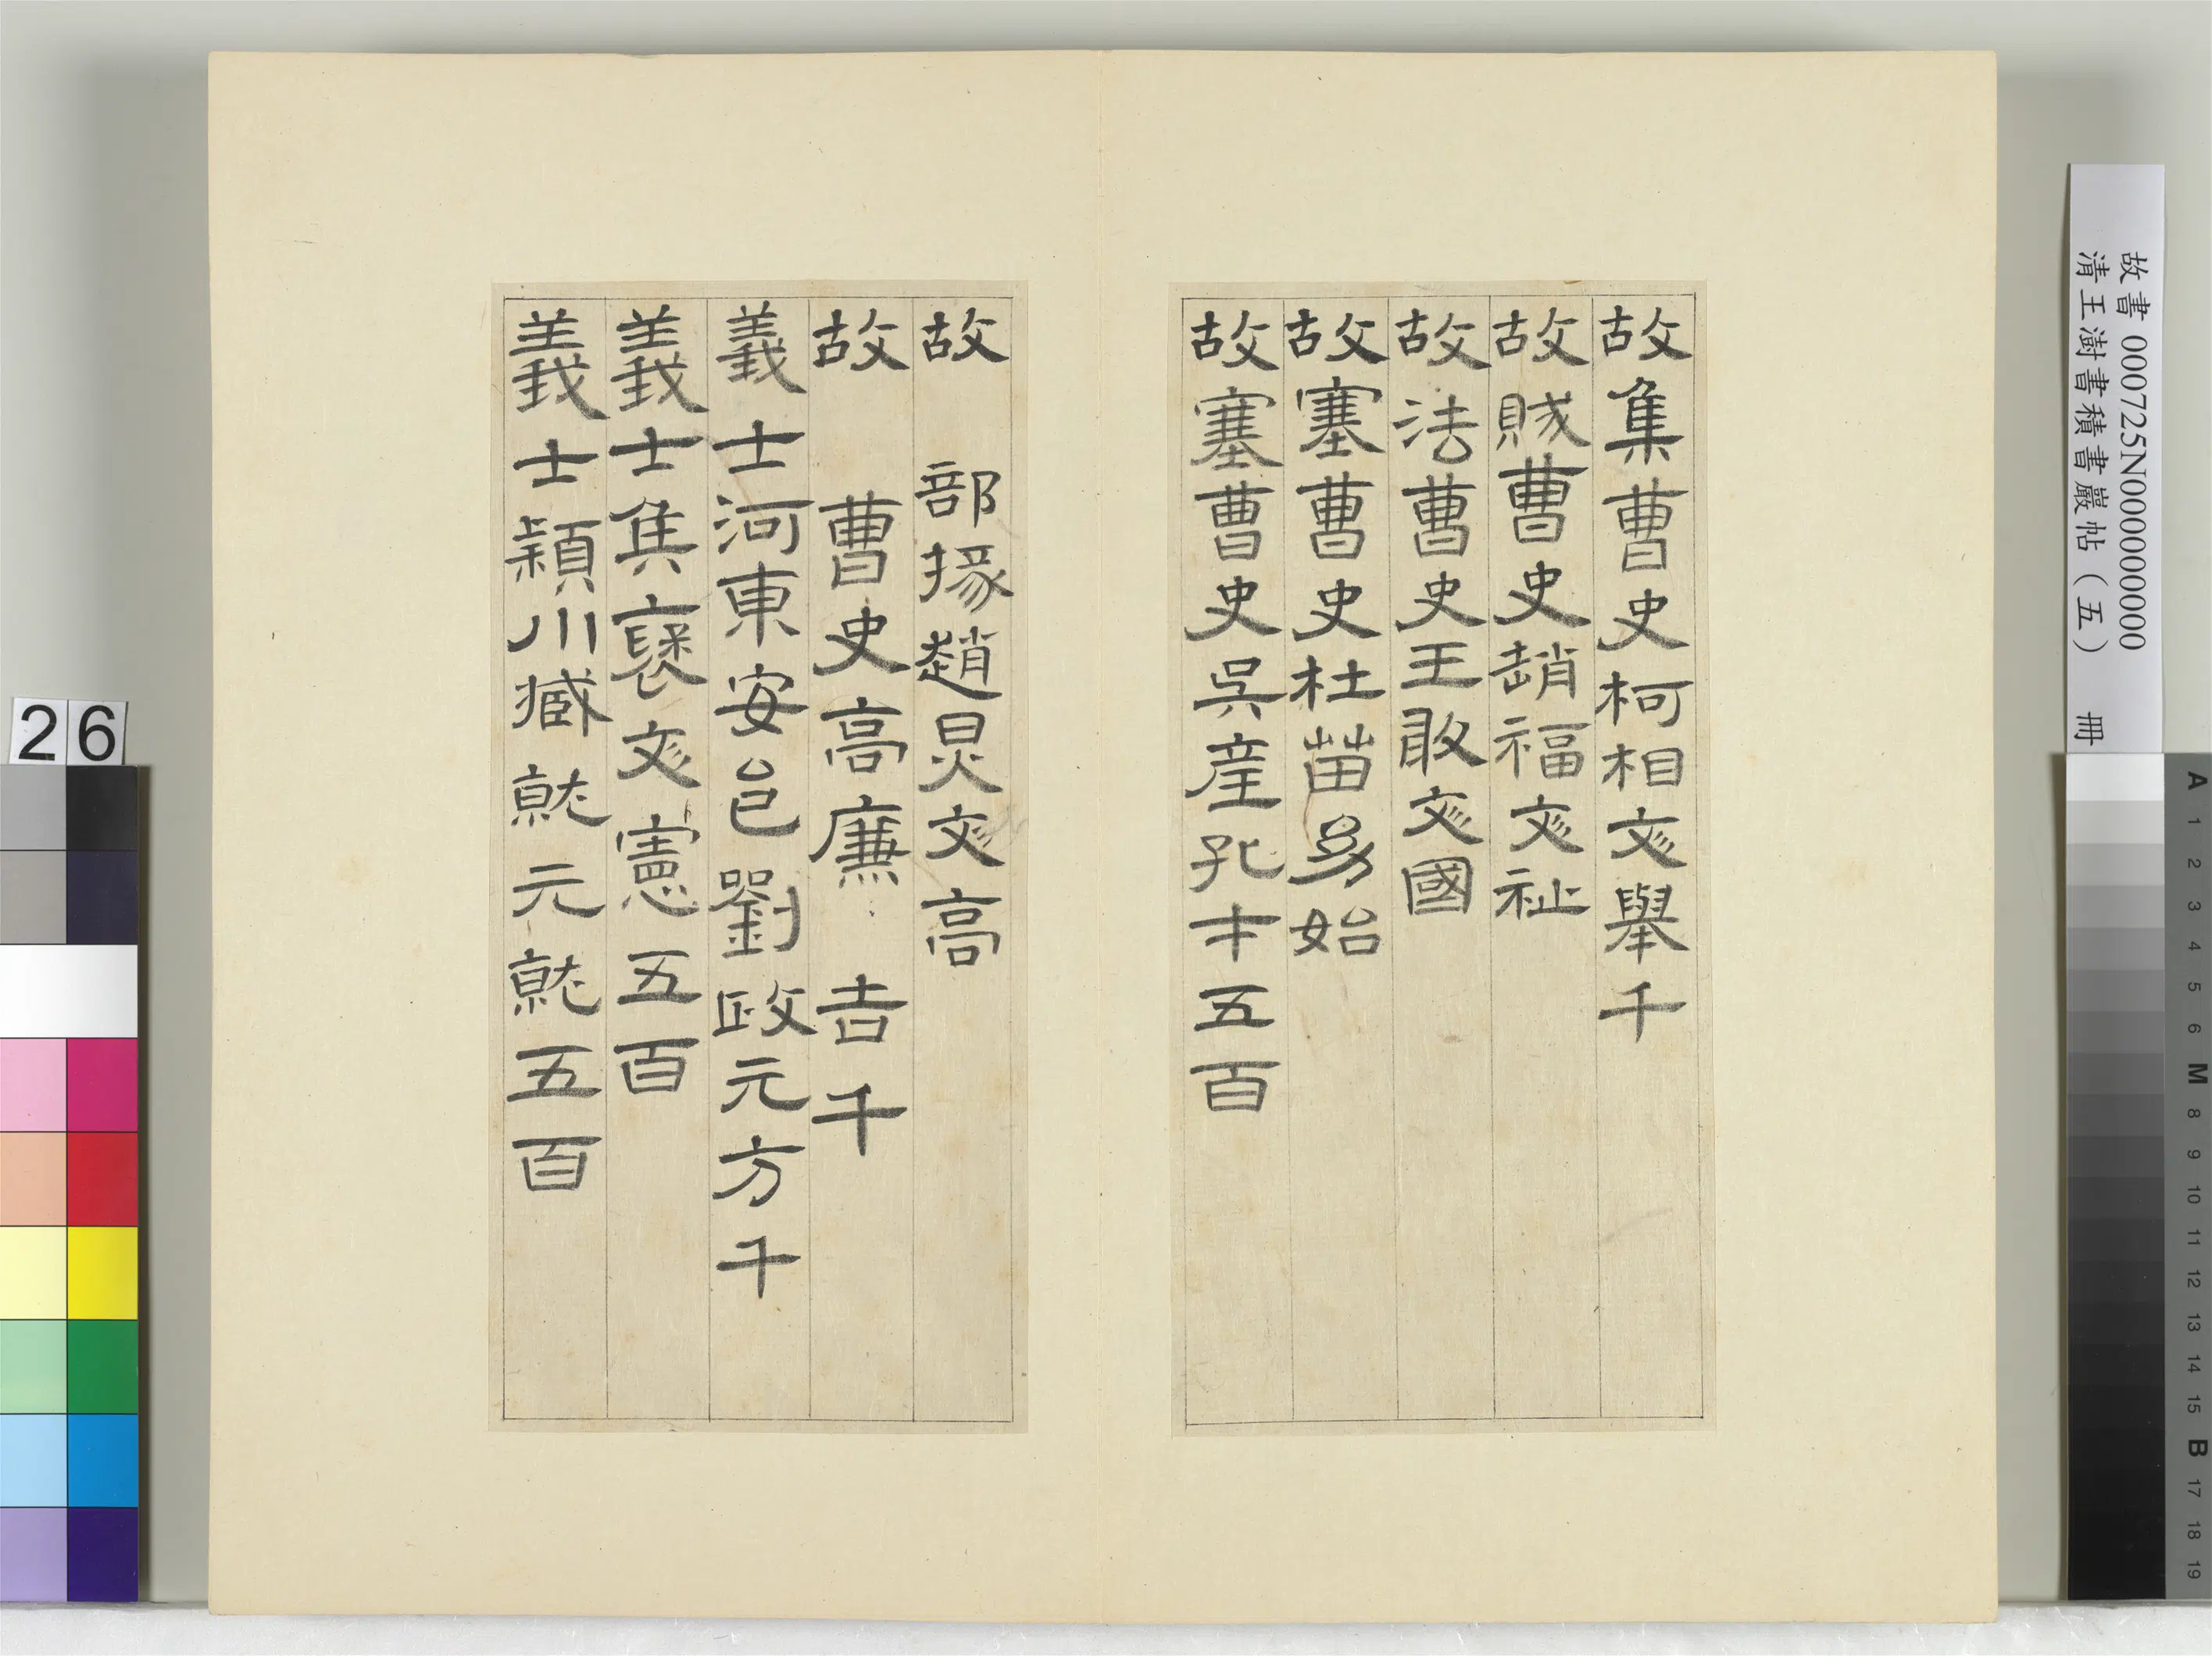 故集曹史柯相彣舉千
故賊曹史趙福彣祉
故法曹史王敢彣國
故塞曹史杜苗幼始
故塞曹史吳產孔才五百
故 部掾趙炅彣高
故 曹史高廉 吉千
義士河東安邑劉政元方千
義士侯褒彣憲五百
義士穎川臧就元就五百
故書 000725N000000000
清王澍書積書巖帖（五） 冊
26
A 1 2 3 4 5 6 M 8 9 10 11 12 13 14 15 B 17 18 19